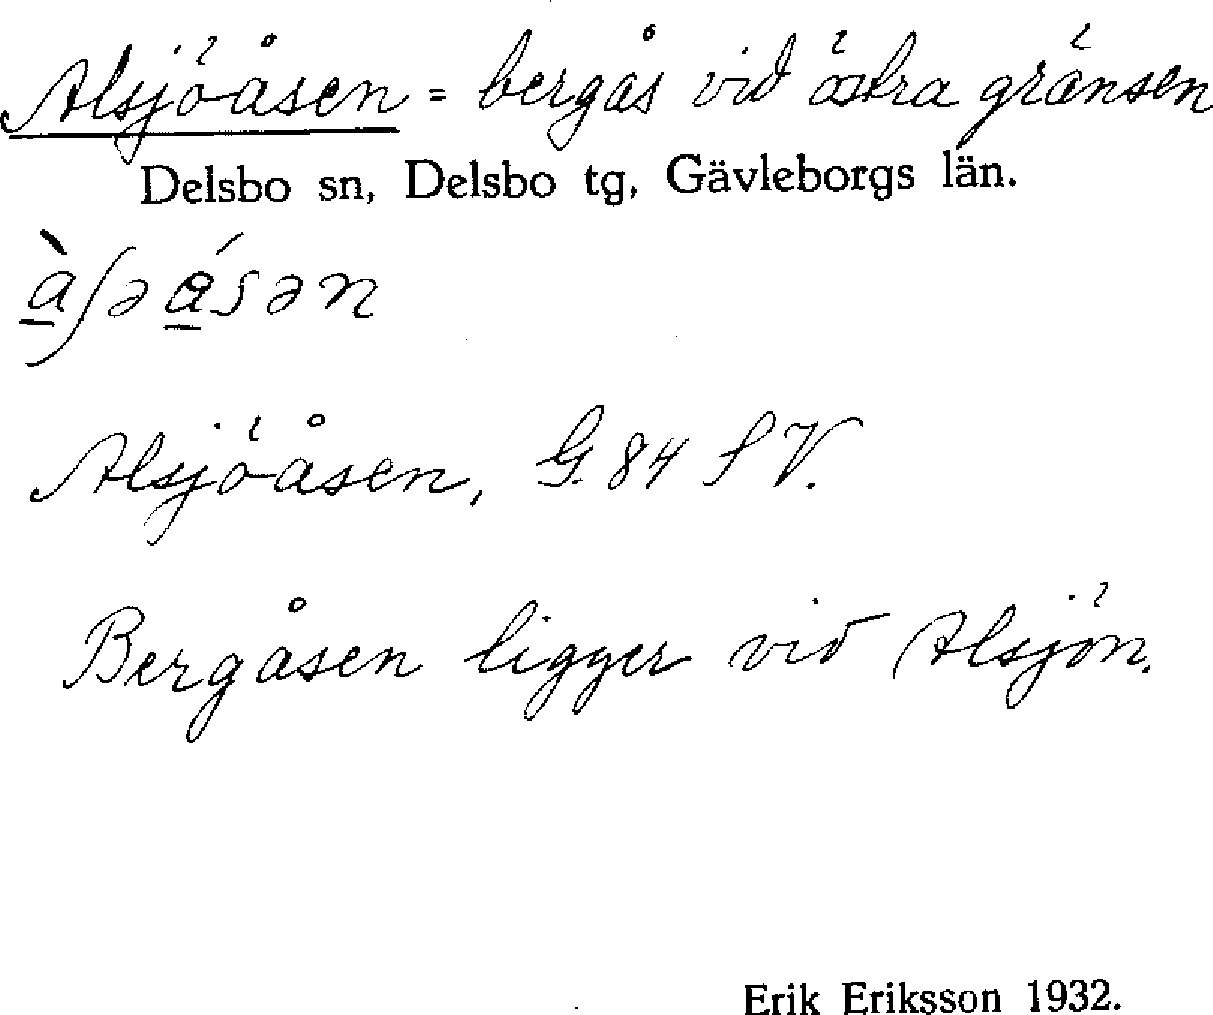 Alsjöåsen = bergås vid östra gränsen
Delsbo sn, Delsbo tg, Gävleborgs län.
Alsjöåsen, G. 84 S V.
Bergåsen ligger vid Alsjön.
Erik Eriksson 1932.